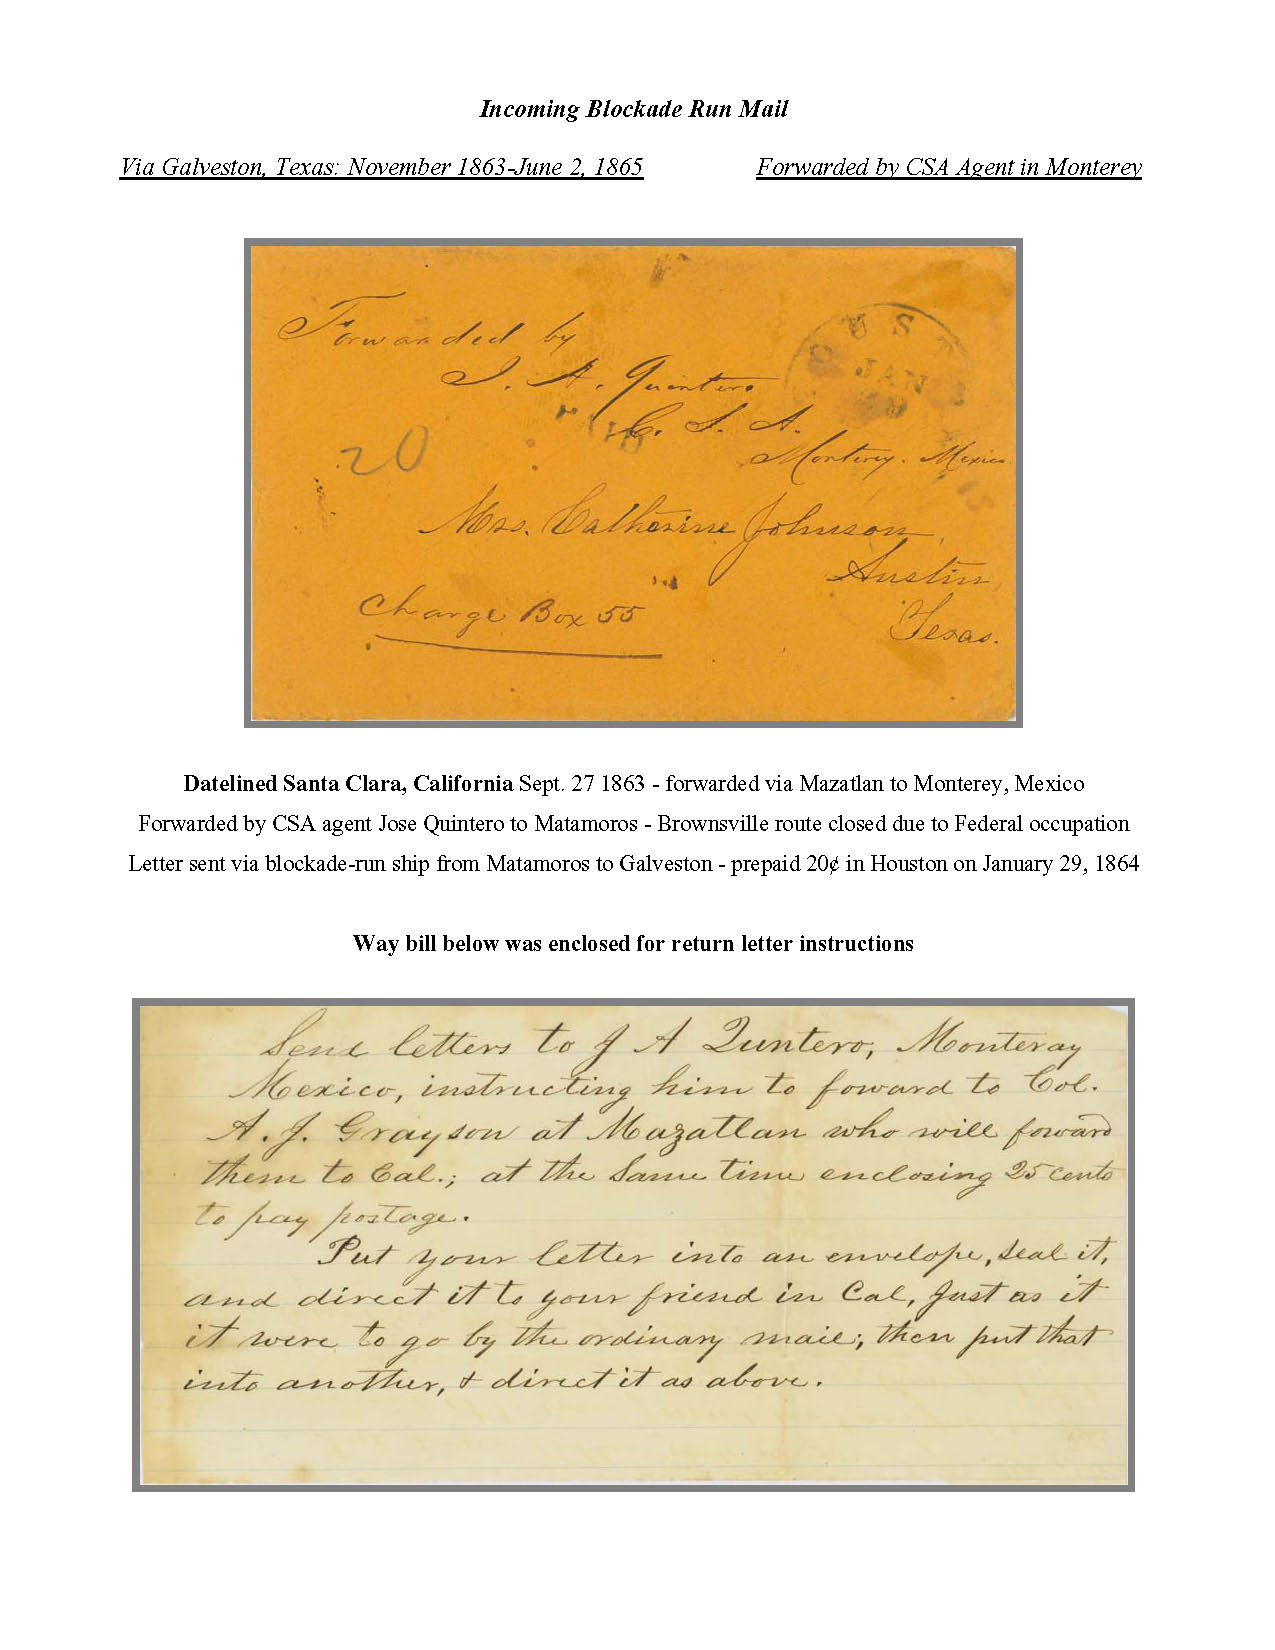 Incoming Blockade Run Mail
Via Galveston, Texas: November 1863-June 2, 1865 Forwarded by CSA Agent in Monterey
Forwarded by
J. A. Quintero
C. S. A.
Monterey. Mexico
20
Mrs. Catherine Johnson,
Austin,
Texas.
Charge Box 55
Datelined Santa Clara, California Sept. 27 1863 - forwarded via Mazatlan to Monterey, Mexico
Forwarded by CSA agent Jose Quintero to Matamoros - Brownsville route closed due to Federal occupation
Letter sent via blockade-run ship from Matamoros to Galveston - prepaid 20¢ in Houston on January 29, 1864
Way bill below was enclosed for return letter instructions
Send letters to J A Quntero, Monteray
Mexico, instructing him to foward to Col.
A. J. Grayson at Mazatlan who will foward
them to Cal.; at the same time enclosing 25 cents
to pay postage.
Put your letter into an envelope, seal it,
and direct it to your friend in Cal, just as it
it were to go by the ordinary mail; then put that
into another, & direct it as above.